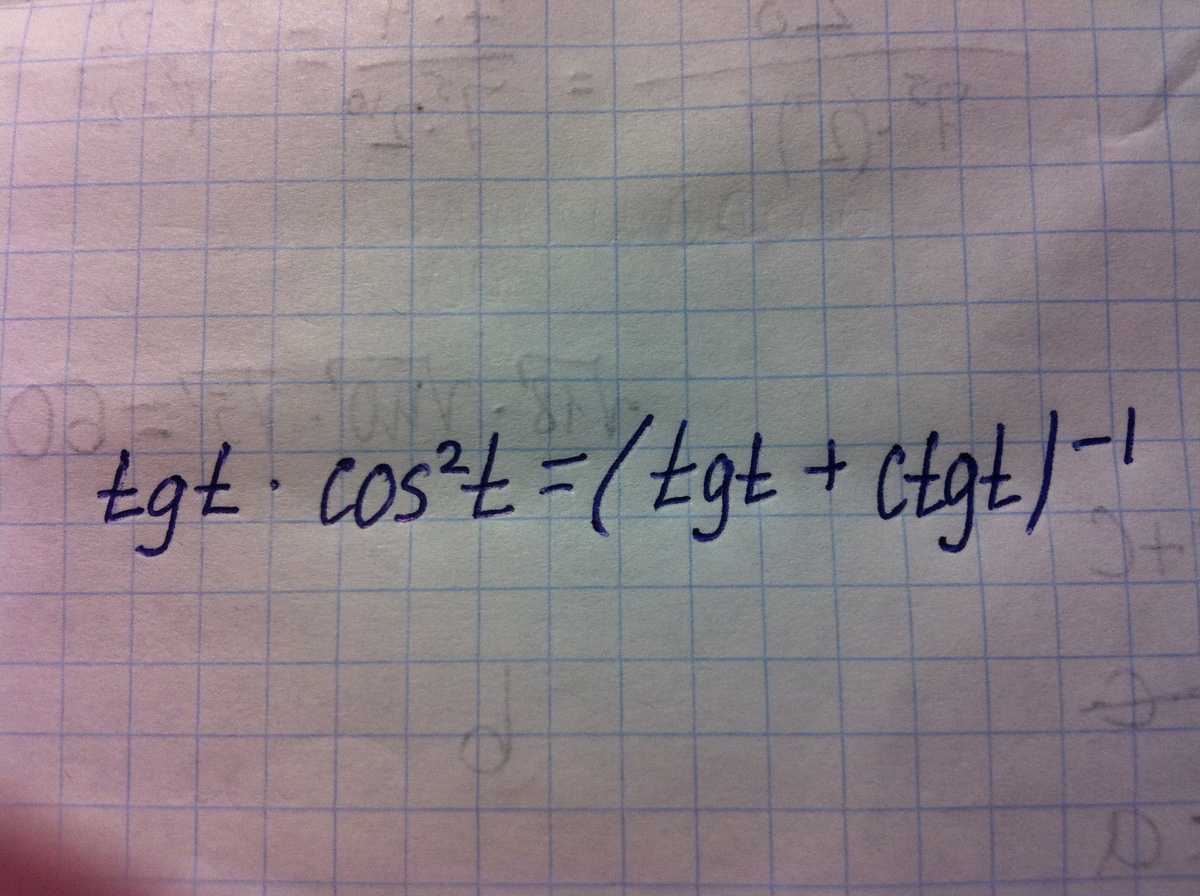 tgt · cos²t = (tgt + ctgt)⁻¹